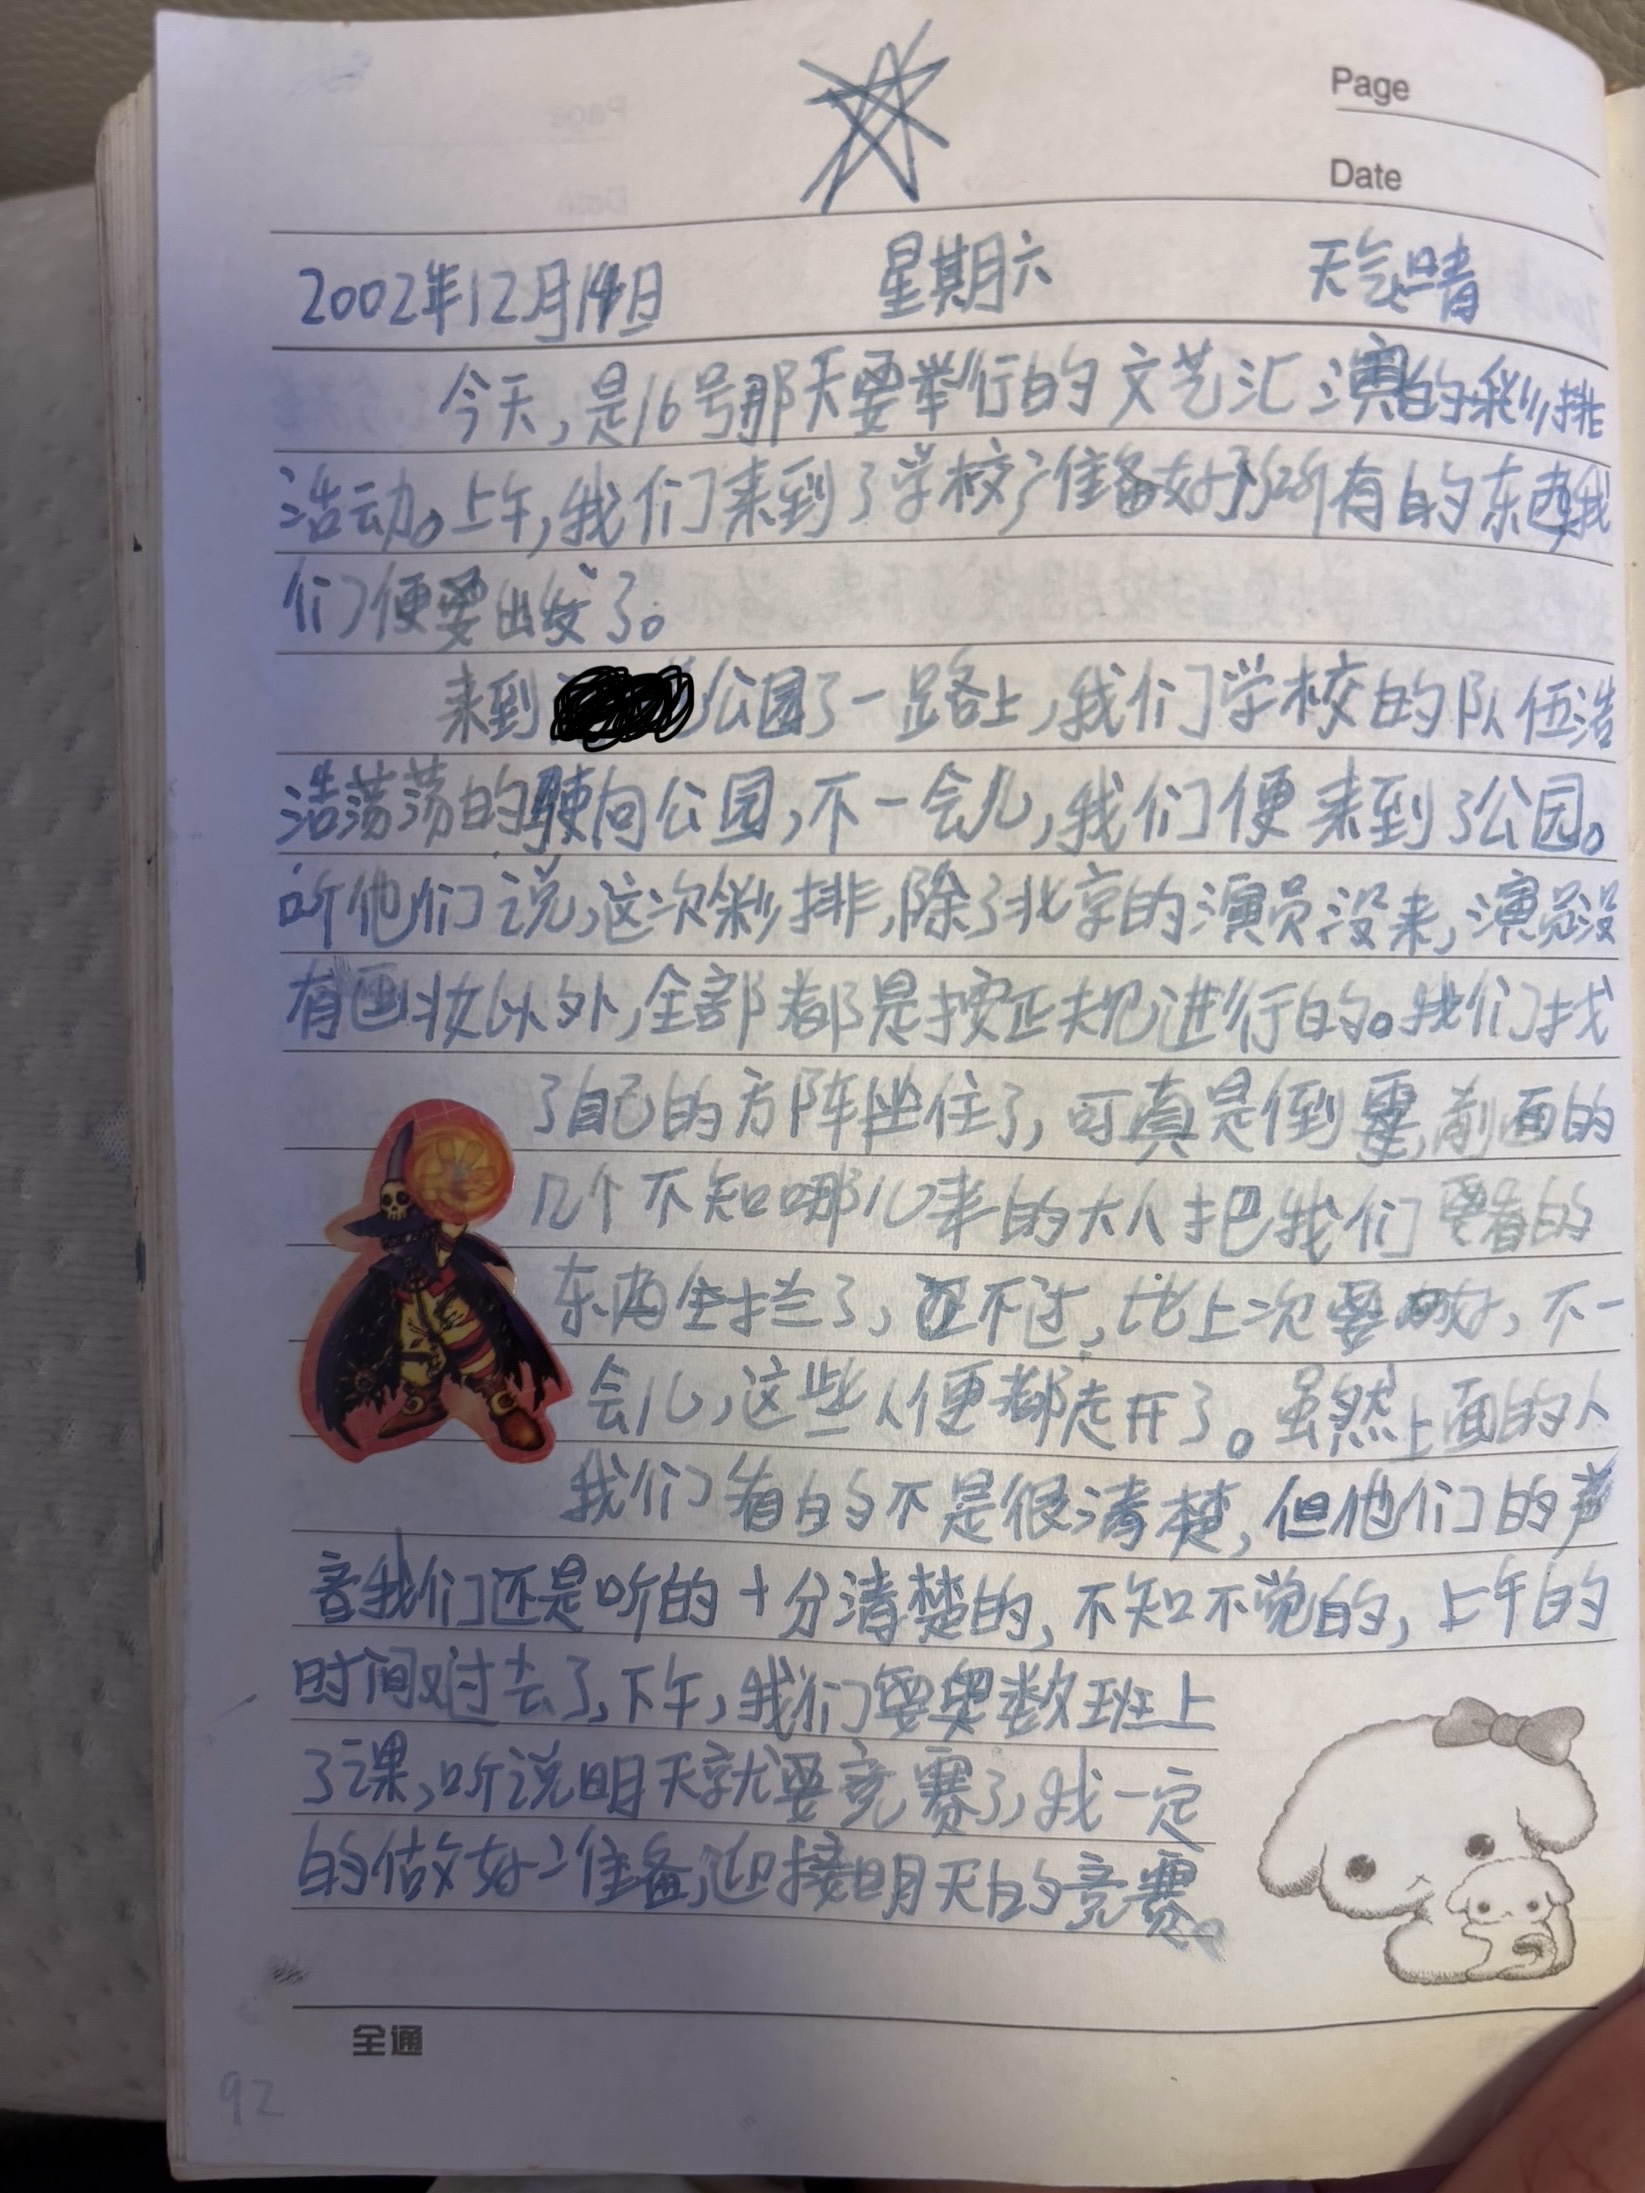 Page
Date
2002年12月14日 星期六 天气晴
今天,是16号那天要举行的文艺汇演的彩排
活动。上午,我们来到了学校准备好所有的东西,我
们便要出发了。
来到 公园了一路上,我们学校的队伍浩
浩荡荡的驶向公园,不一会儿,我们便来到了公园。
听他们说,这次彩排,除了北京的演员没来,演员没
有画妆以外,全部都是按正规进行的。我们找
了自己的方阵坐住了,可真是倒霉,前面的
几个不知哪儿来的大人把我们要看的
东西全拦了,还不过,比上次要好,不一
会儿,这些人便都走开了。虽然上面的人
我们看的不是很清楚,但他们的声
音我们还是听的十分清楚的,不知不觉的,上午的
时间对过去了,下午,我们要奥数班上
了课,听说明天就要竞赛了,我一定
的做好准备,迎接明天的竞赛。
全通
92